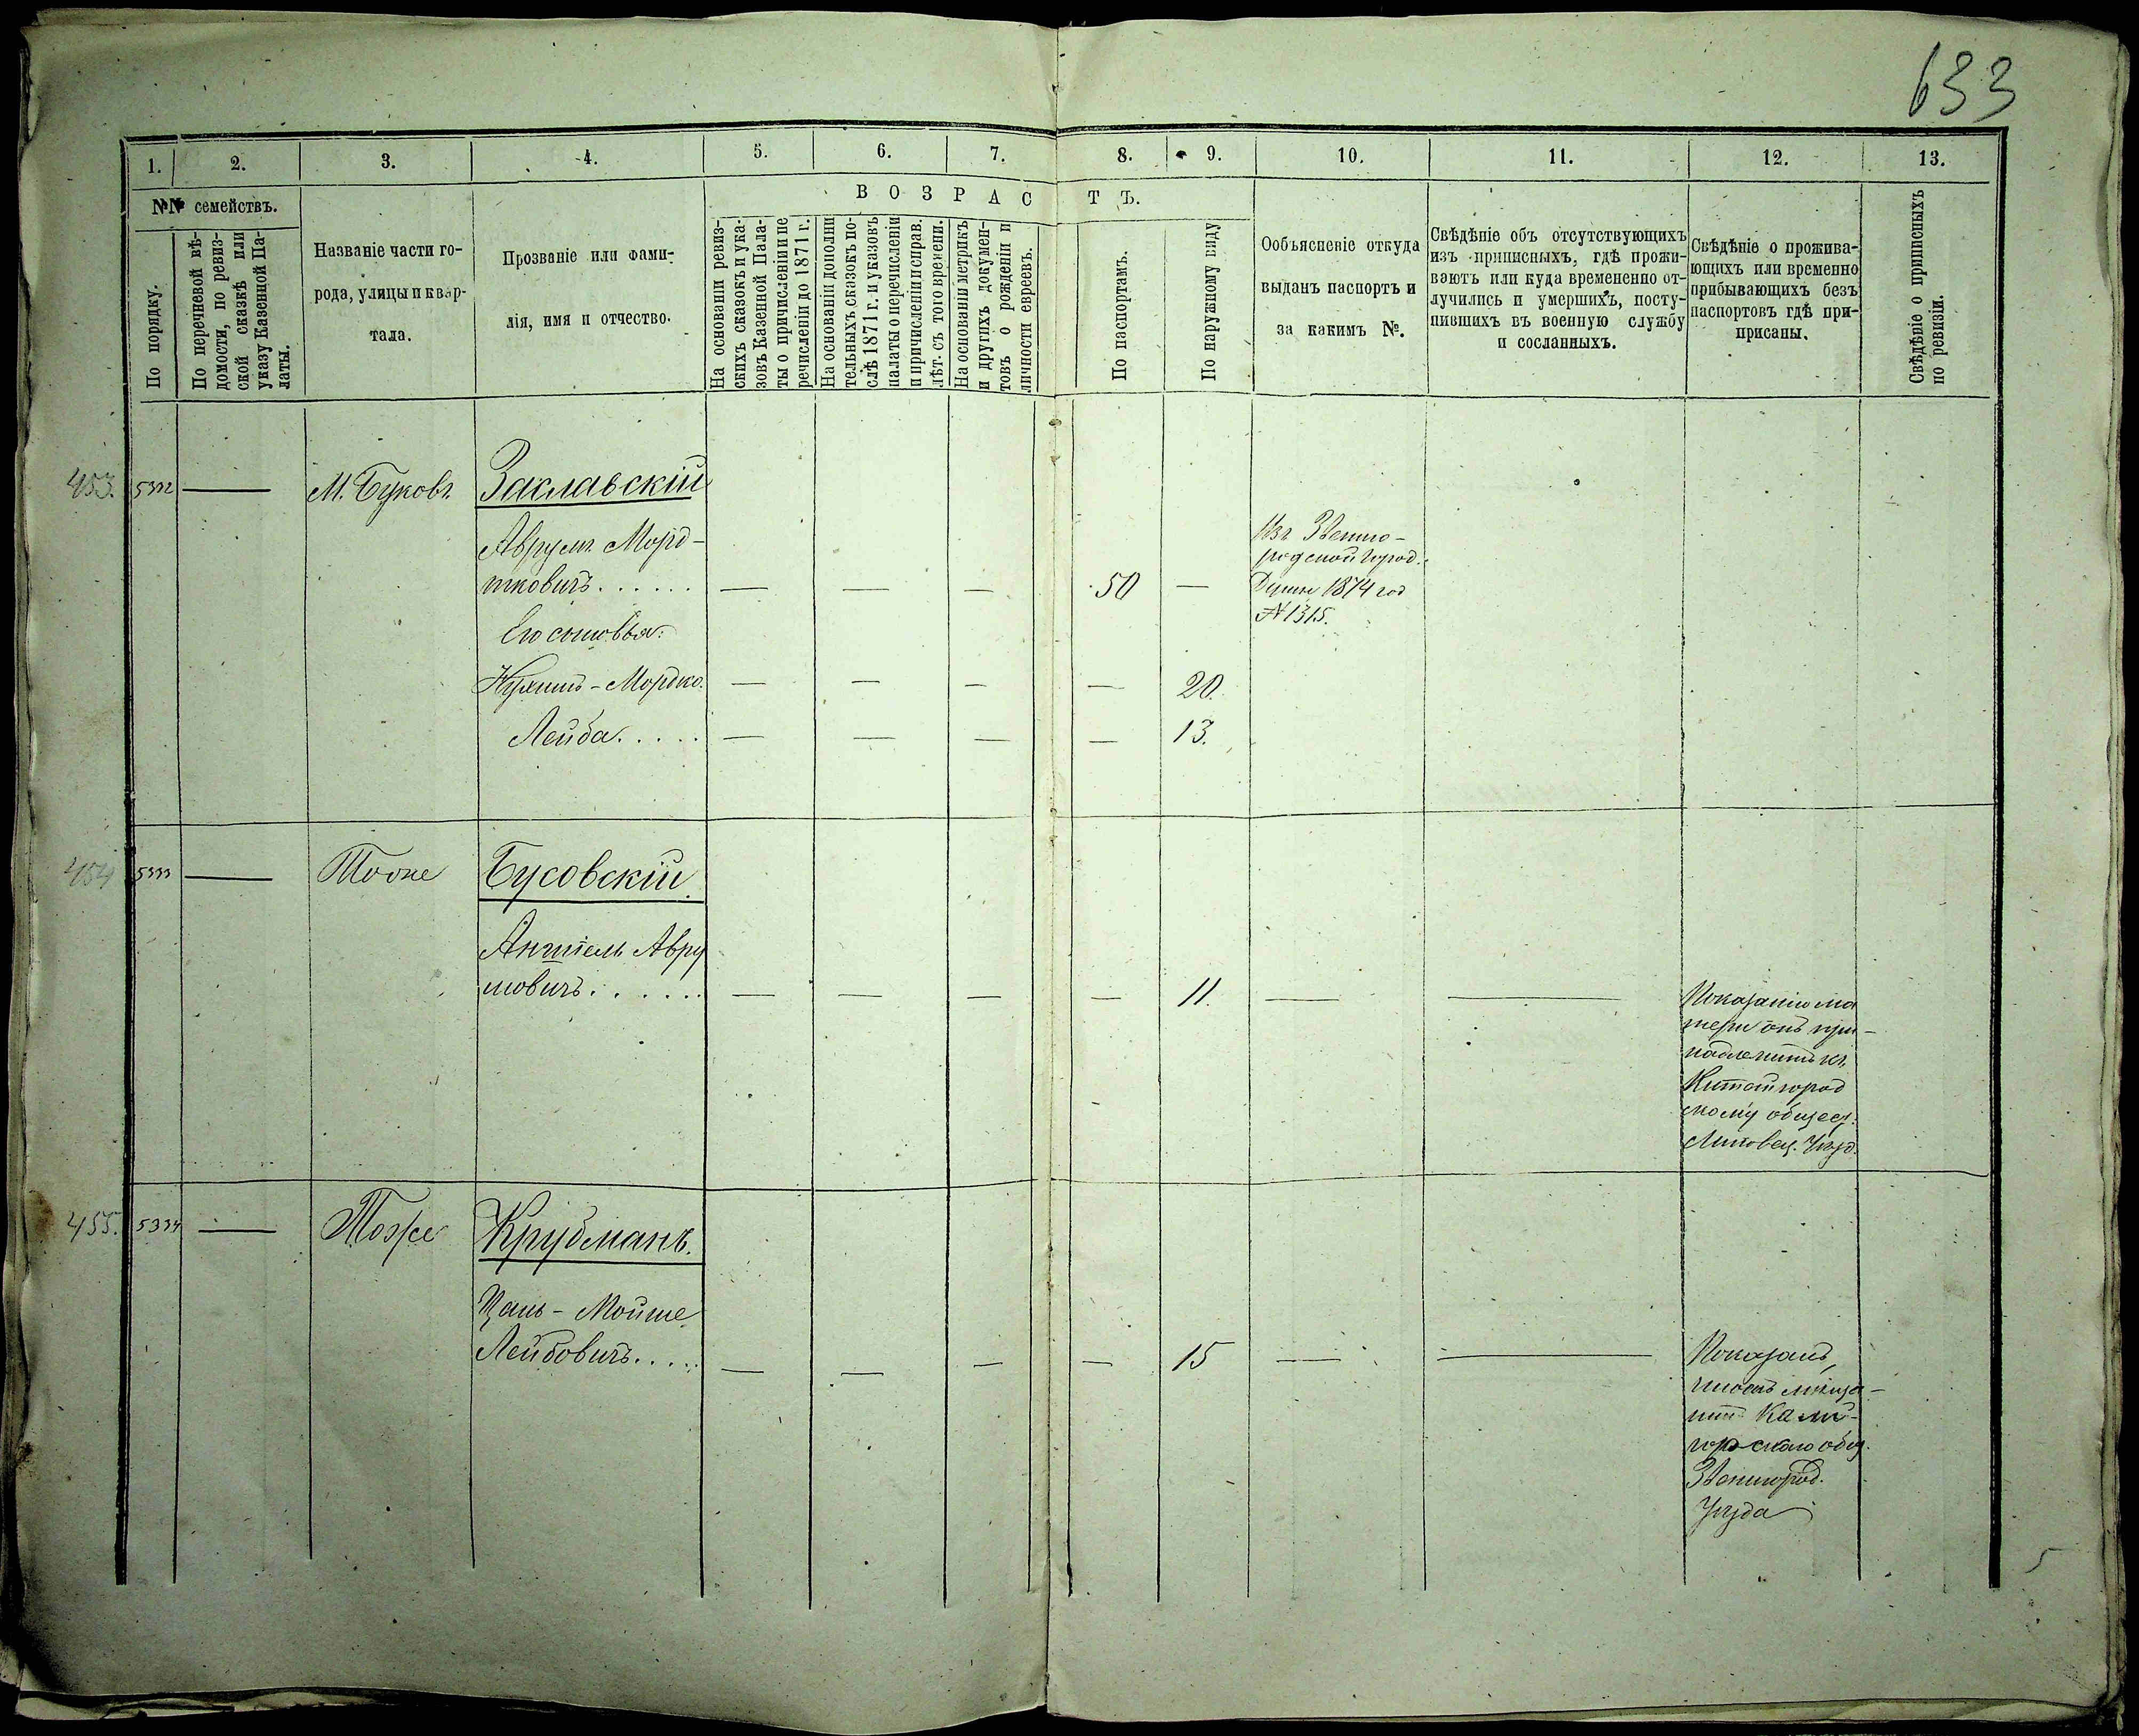 633
1. 2. 3. 4. 5. 6. 7. 8. 9. 10. 11. 12. 13.
ВОЗРАСТЪ.
№№ семействъ.
По порядку.
По перечневой вѣ-
домости, по ревиз-
ской сказкѣ или
указу Казенной Па-
латы.
Названіе части го-
рода, улицы и квар-
тала.
Прозваніе или фами-
лія, имя и отчество.
На основаніи ревиз-
скихъ сказокъ и ука-
зовъ Казенной Пала-
ты о причисленіи и пе
речисленіи до 1871 г.
На основаніи дополни
тельныхъ сказокъ по-
слѣ 1871 г. и указовъ
палаты о перечисленіи
и причисленіи и справ.
лѣт. съ того времени.
На основаніи метрикъ
и другихъ докумен-
товъ о рожденіи и
личности евреевъ.
По паспортамъ.
По наружному виду
Ообъясненіе откуда
выданъ паспортъ и
за какимъ №.
Свѣдѣніе объ отсутствующихъ
изъ приписныхъ, гдѣ прожи-
ваютъ или куда времененно от-
лучились и умершихъ, посту-
пившихъ въ военную службу
и сосланныхъ.
Свѣдѣніе о прожива-
ющихъ или временно
прибывающихъ безъ
паспортовъ гдѣ при-
приcаны.
Свѣдѣніе о приписныхъ
по ревизіи.
453. 5332 — М. Буковъ. Заславскій
Аврумъ Морд-
ковичъ...... — — — 50 —
Изъ Звенио-
родской город.
Думы 1874 год
№ 1315.
Его сыновья:
Нухимъ-Мордко. — — — — 20.
Лейба..... — — — — 13.
454 5333 — Тоже Бусовскій.
Аншіель Авру
мовичъ...... — — — — 11. — —
Показанію ма
тери онъ при-
надлежитъ къ
Китайгород
скому общес.
Липовец. Уѣзд.
455. 5334 — Тоже Крубманъ.
Цаль-Мойше
Лейбовичъ..... — — — — 15 — —
Показалъ,
что онъ мѣща-
нинъ
горскаго общ.
Звенигород.
Уѣзда